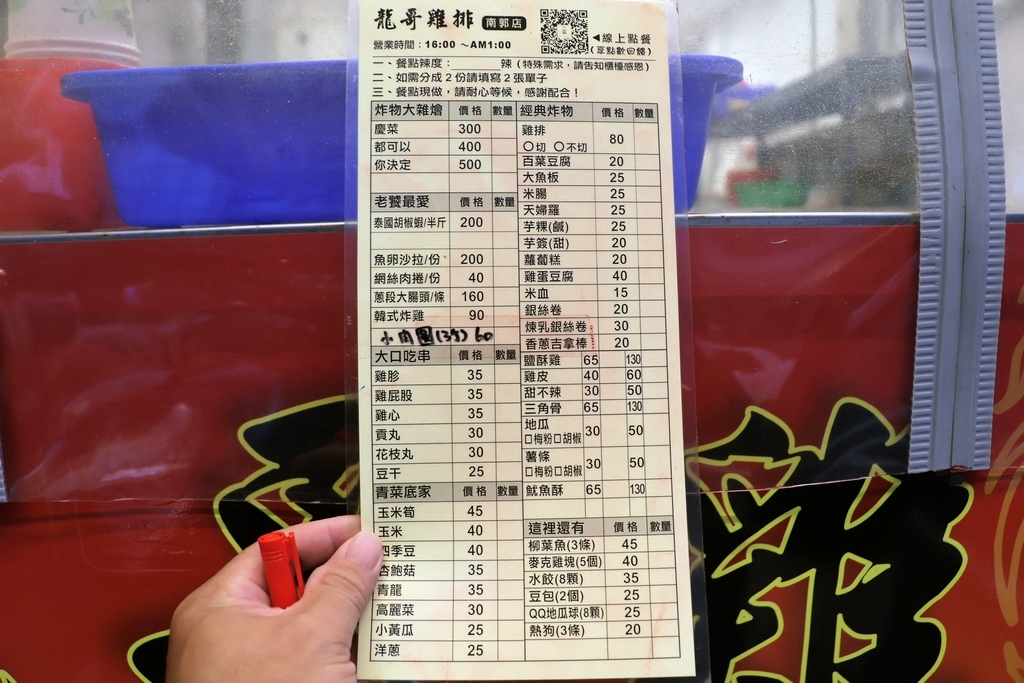 龍哥雞排 南郭店
營業時間：16:00 ～AM1:00
◀線上點餐
(享點數回饋)
一、餐點辣度：　　　　辣（特殊需求，請告知櫃檯感恩）
二、如需分成2份請填寫2張單子
三、餐點現做，請耐心等候，感謝配合！
炸物大雜燴 價格 數量
慶菜 300
都可以 400
你決定 500
老饕最愛 價格 數量
泰國胡椒蝦/半斤 200
魚卵沙拉/份 200
網絲肉捲/份 40
蔥段大腸頭/條 160
韓式炸雞 90
小肉圓(3粒) 60
大口吃串 價格 數量
雞胗 35
雞屁股 35
雞心 35
貢丸 30
花枝丸 30
豆干 25
青菜底家 價格 數量
玉米筍 45
玉米 40
四季豆 40
杏鮑菇 35
青龍 35
高麗菜 30
小黃瓜 25
洋蔥 25
經典炸物 價格 數量
雞排 80
○切 ○不切
百葉豆腐 20
大魚板 25
米腸 25
天婦羅 25
芋粿(鹹) 25
芋簽(甜) 20
蘿蔔糕 20
雞蛋豆腐 40
米血 15
銀絲卷 20
煉乳銀絲卷 30
香蔥吉拿棒 20
鹽酥雞 65 130
雞皮 40 60
甜不辣 30 50
三角骨 65 130
地瓜 30 50
□梅粉□胡椒
薯條 30 50
□梅粉□胡椒
魷魚酥 65 130
這裡還有 價格 數量
柳葉魚(3條) 45
麥克雞塊(5個) 40
水餃(8顆) 35
豆包(2個) 25
QQ地瓜球(8顆) 25
熱狗(3條) 20
雞